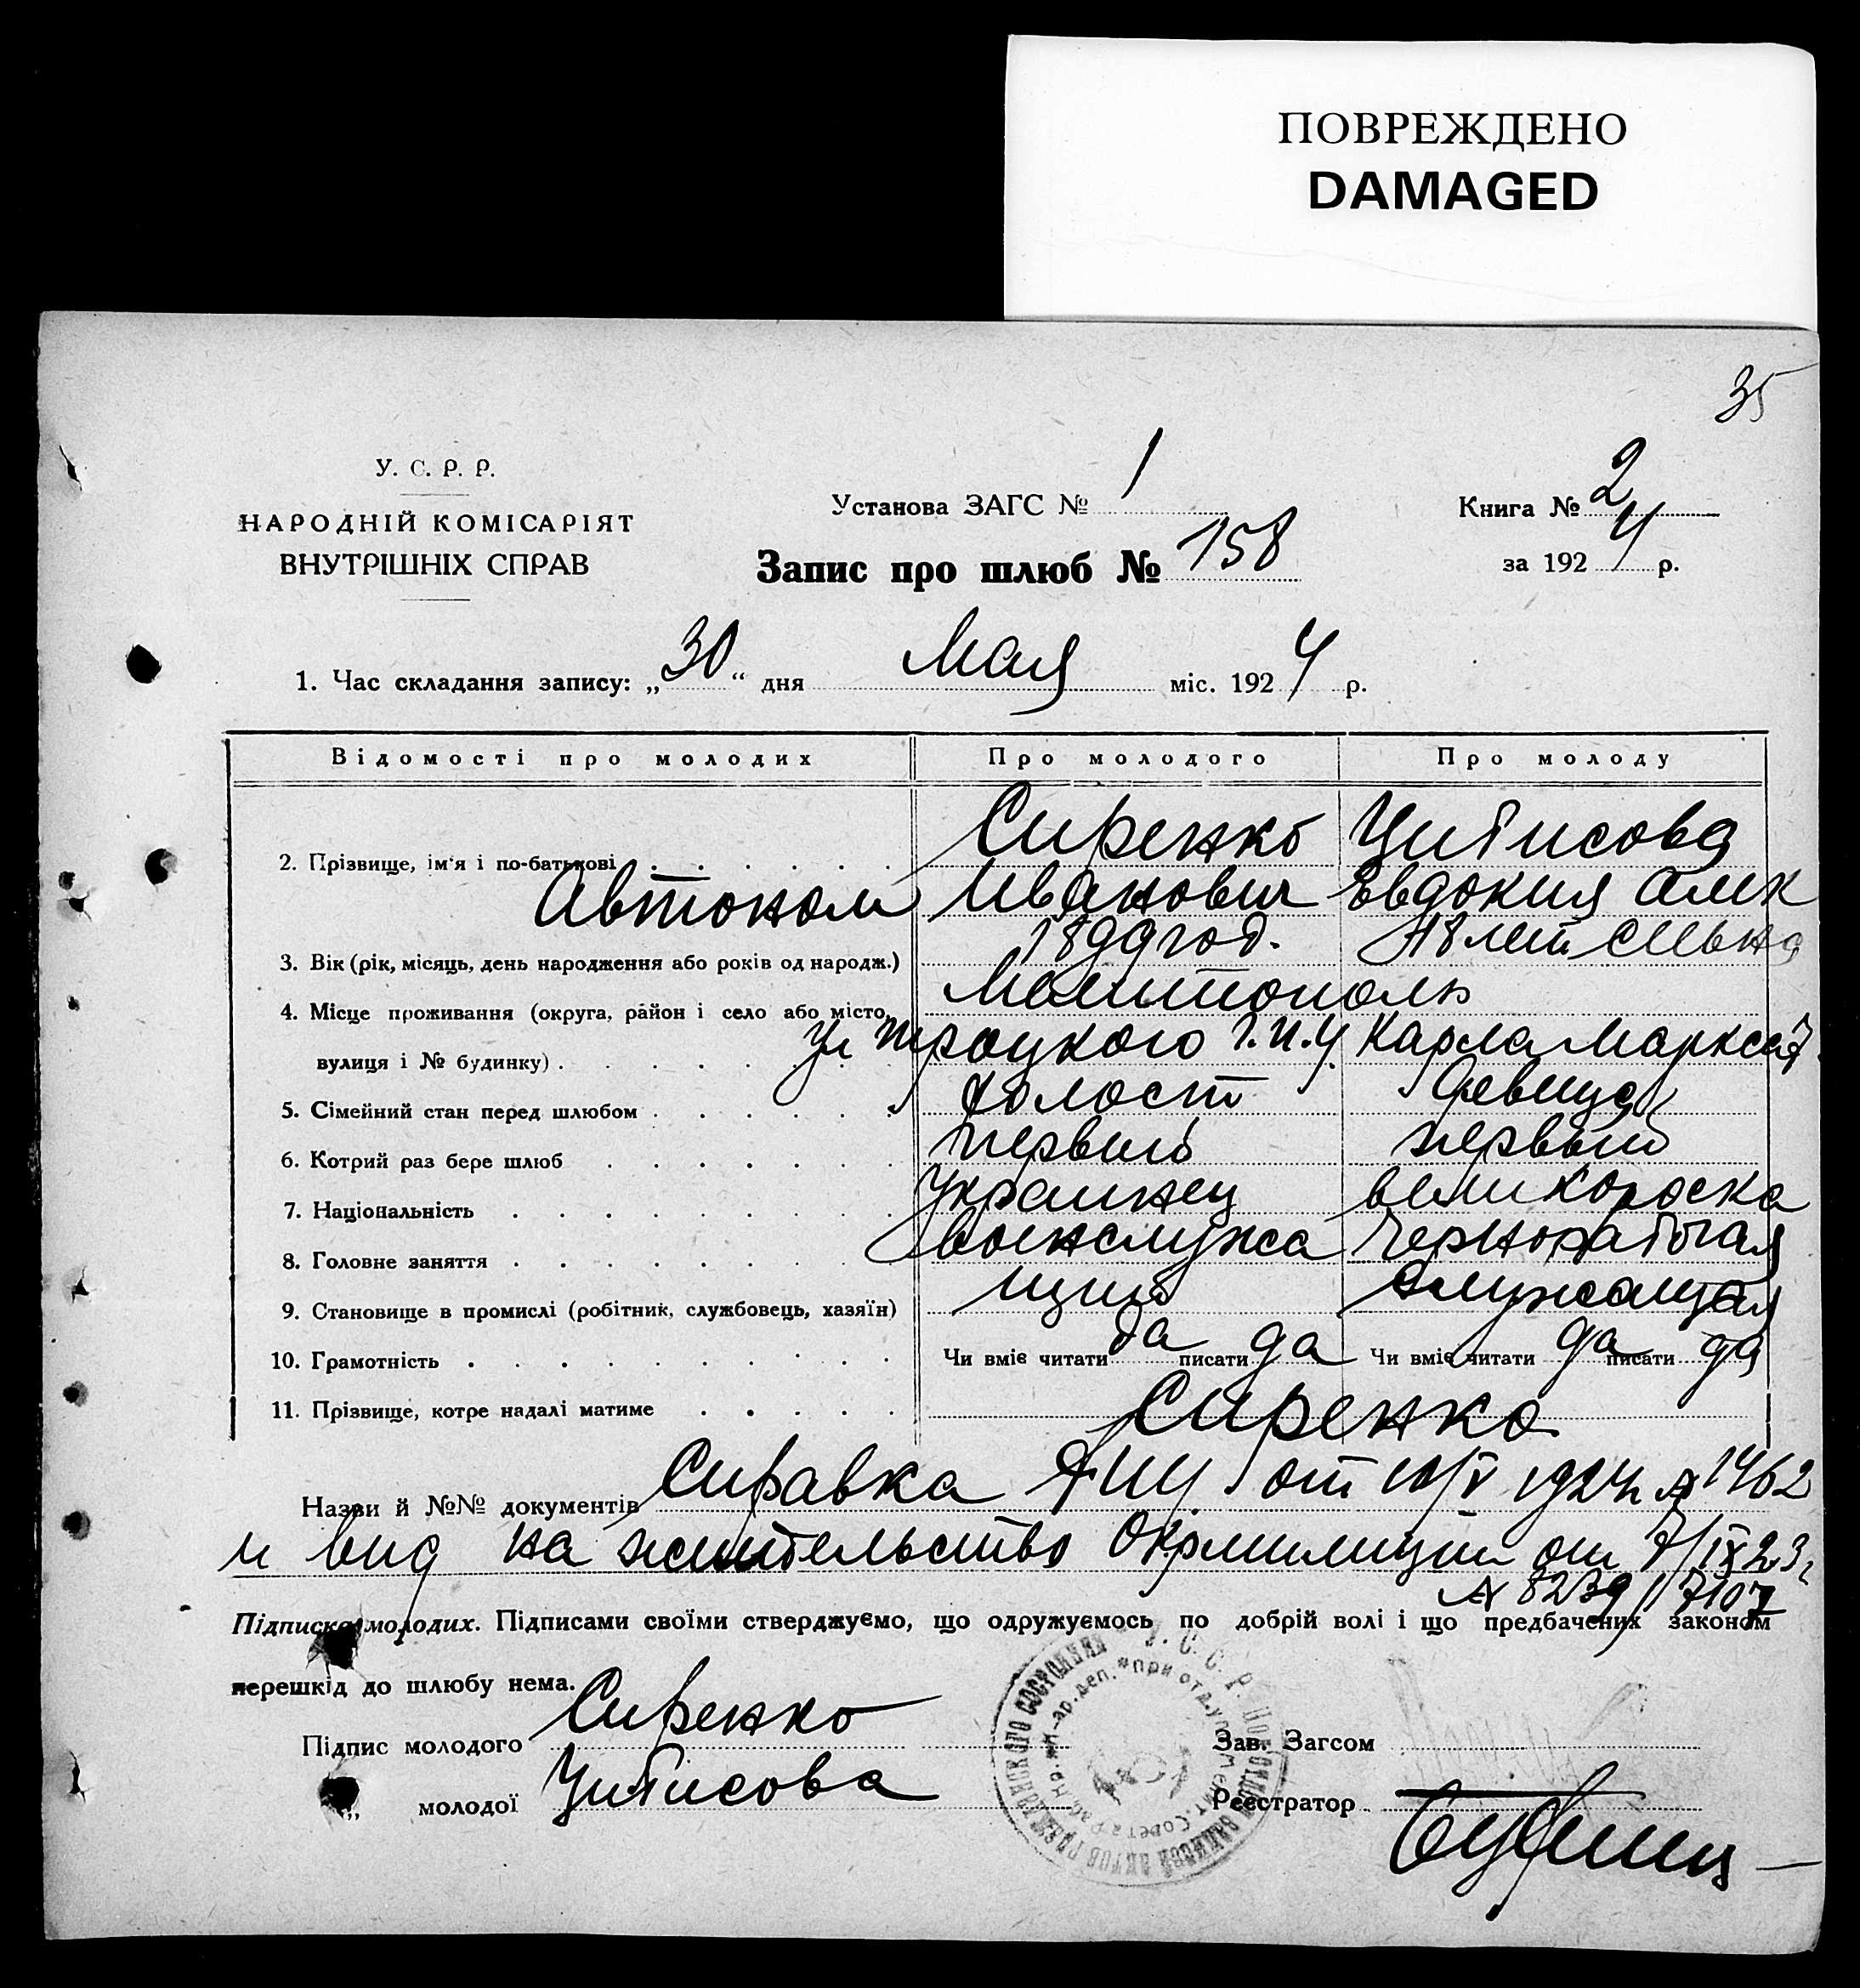 ПОВРЕЖДЕНО
DAMAGED
35
У. С. Р. Р.
НАРОДНІЙ КОМІСАРІЯТ
ВНУТРІШНІХ СПРАВ
Установа ЗАГС № 1
Запис про шлюб № 158
Книга № 2
за 1924 р.
1. Час складання запису: „30“ дня Мая міс. 1924 р.
Відомості про молодих Про молодого Про молоду
2. Прізвище, ім'я і по-батькові Сиренко
Автоном Иванович Евдокия Алек
3. Вік (рік, місяць, день народження або років од народж.) 1899 год. 18 лет
4. Місце проживання (округа, район і село або місто, Мелитополь
вулиця і № будинку) Ул Троцкого Г.П.У Карла Маркса
5. Сімейний стан перед шлюбом холост девица
6. Котрий раз бере шлюб первый первый
7. Національність Украинец великороска
8. Головне заняття Военслужа Чернорабочая
9. Становище в промислі (робітник, службовець, хазяїн) щий Служащая
10. Грамотність Чи вміє читати да писати да Чи вміє читати да писати да
11. Прізвище, котре надалі матиме Сиренко
Назви й №№ документів Справка от 1924 г № 1462
и вид на жительство Окрмилиции от 7/IX 23 г
№ 8239/7107
Підписка молодих. Підписами своїми стверджуємо, що одружуємось по добрій волі і що предбачених законом
перешкід до шлюбу нема.
Підпис молодого Сиренко
„ молодої
Зав. Загсом
Реєстратор